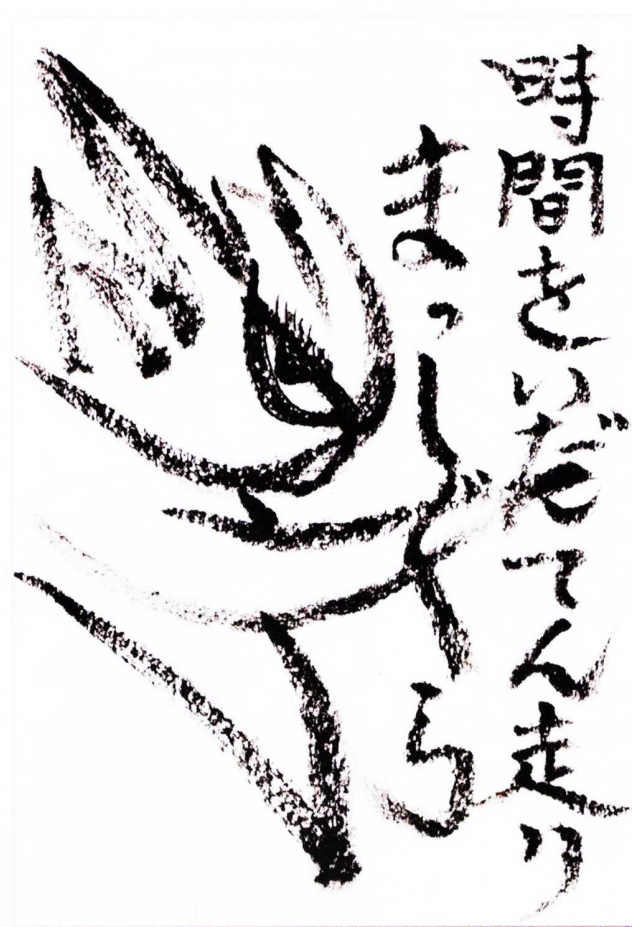 時間をいだてん走り
まっしぐら